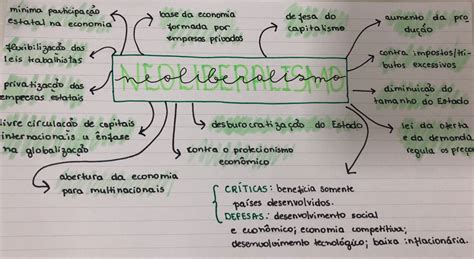 mínima participação
estatal na economia
base da economia
formada por
empresas privadas
defesa do
capitalismo
aumento da pro
dução
flexibilização das
leis trabalhistas
NEOLIBERALISMO
neoliberalismo
contra impostos/tri
butos excessivos
privatização das
empresas estatais
diminuição do
tamanho do Estado
livre circulação de capitais
internacionais a ênfase
na globalização
desburocratização do Estado
lei da oferta
e da demanda
regula os preços
contra o protecionismo
econômico
abertura da economia
para multinacionais
CRÍTICAS: beneficia somente
países desenvolvidos.
DEFESAS: desenvolvimento social
e econômico; economia competitiva;
desenvolvimento tecnológico; baixa inflacionária.